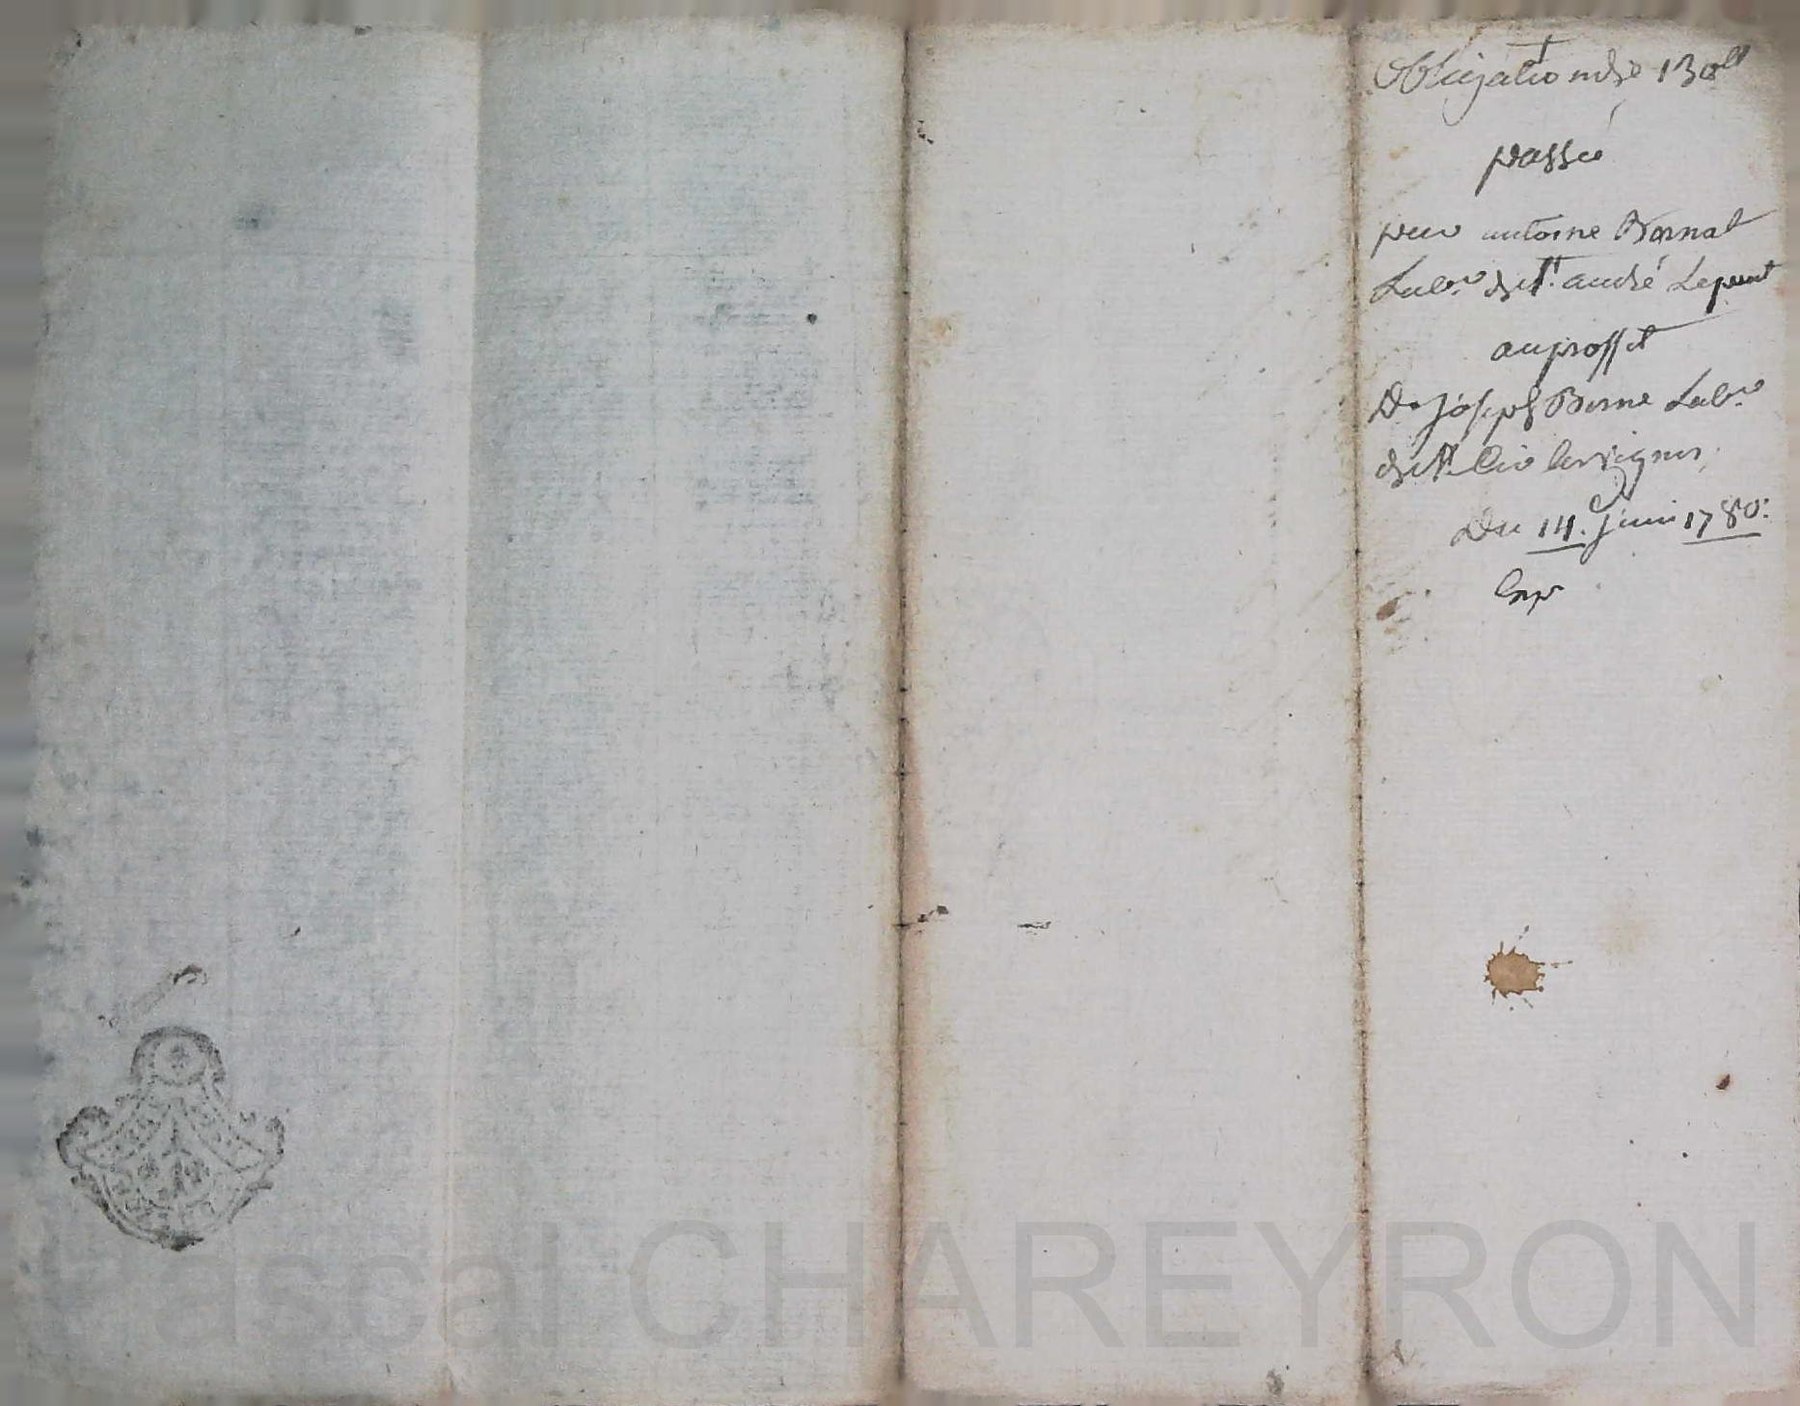 obligation de 130ll
passée
par antoine Bornat
Labr. de St. andré Lepuat
au proffit
De joseph Borne Labr.
de St.
Du 14. juin 1780.
Exp
ascal CHAREYRON